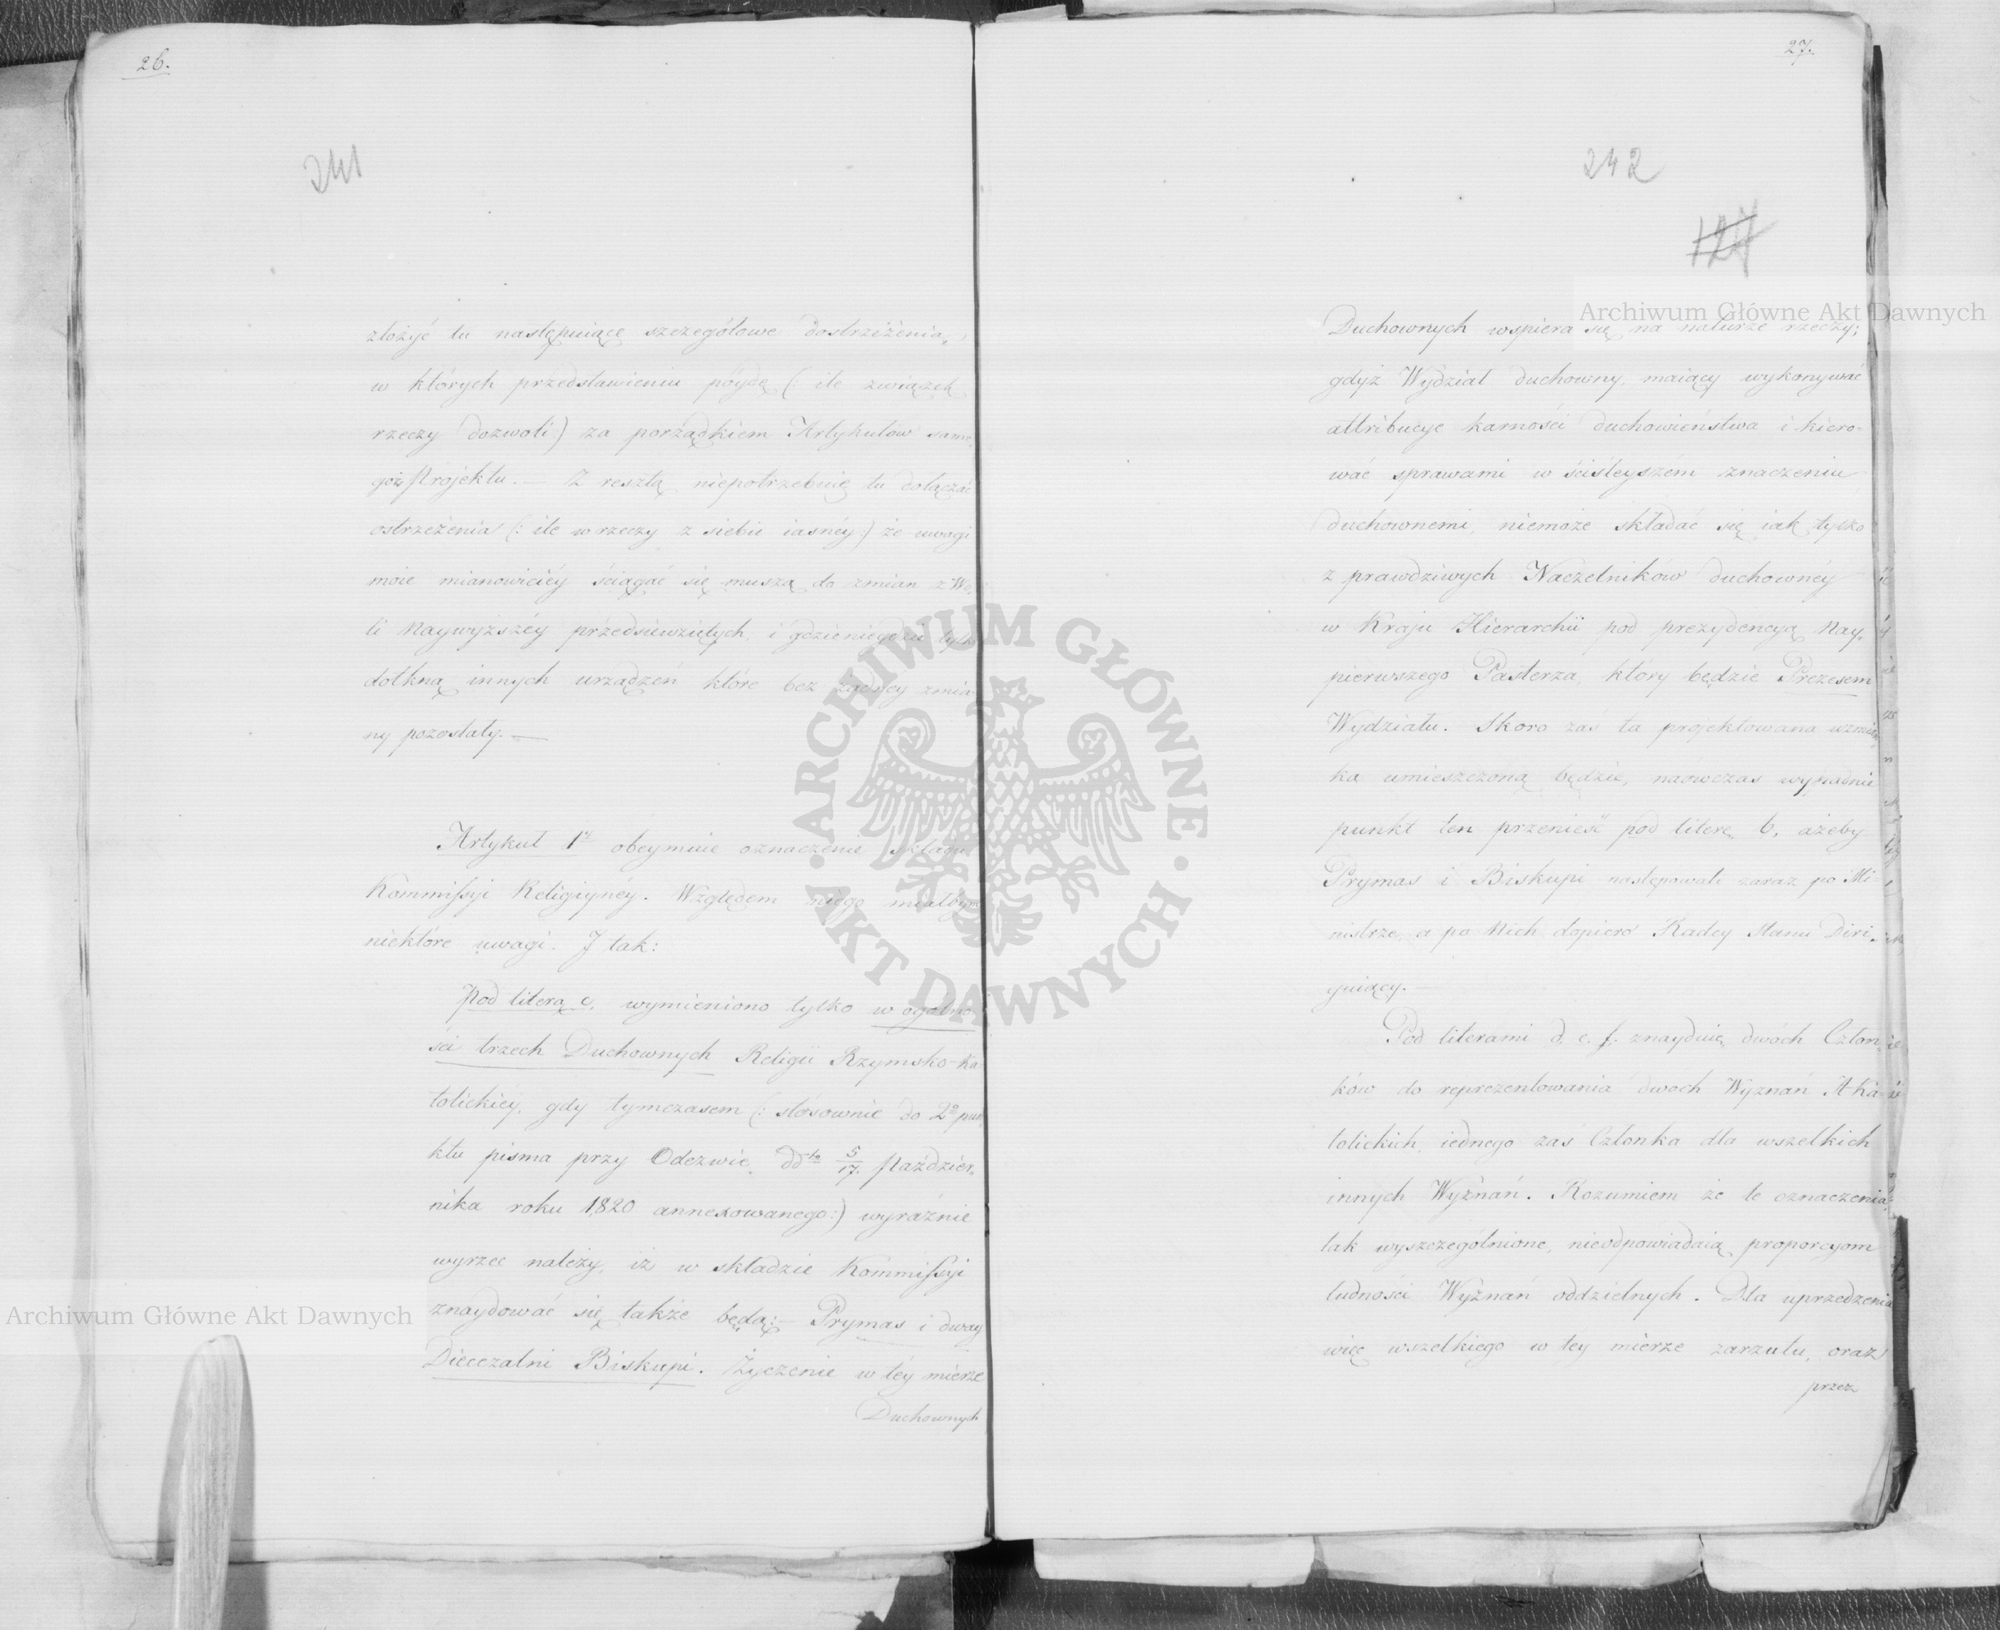 26.
241
złożyć tu następuiące szczegółowe dostrzeżenia,
w których przedstawieniu póydę (: ile związek
rzeczy dozwoli:) za porządkiem Artykułów same,
goż Projektu. — Z resztą niepotrzebuię tu dołączać
ostrzeżenia (: ile w rzeczy z siebie iasnéy:) że uwagi
moie mianowiciéy ściągać się muszą do zmian z Wo,
li Naywyższéy przedsiewziętych, i gdzieniegdzie tylko
dotkną innych urządzeń które bez żadney zmia
ny pozostały. —
Artykuł 1y obeymuie oznaczenie składu
Kommissyi Religiynéy. Względem niego miałbym
niektóre uwagi. I tak:
Pod literą c. wymieniono tylko w ogólno
ści trzech Duchownych Religii Rzymsko-Ka-
tolickiéy, gdy tymczasem (: stosownie do 2o pun,
ktu pisma przy Odezwie dd 5/17. Paździer,
nika roku 1820 annexowanego:) wyraźnie
wyrzec należy, iż w składzie Kommissyi
znaydować się także będą: — Prymas i dway
Diecezalni Biskupi. Życzenie w téy mierze
Duchownych
27.
242
127
Archiwum Główne Akt Dawnych
Duchownych wspiera się na naturze rzeczy;
gdyż Wydział duchowny, maiący wykonywać
attribucye karności duchowieństwa i kiero-
wać sprawami w ściśleyszem znaczeniu
duchownemi, niemoże składać się iak tylko
z prawdziwych Naczelników duchownéy
w Kraju Hierarchii pod prezydencyą Nay,
pierwszego Pasterza, który będzie Prezesem
Wydziału. Skoro zaś ta projektowana wzmian,
ka umieszczoną będzie, naówczas wypadnie
punkt ten przenieść pod literę b. ażeby
Prymas i Biskupi następowali zaraz po Mi
nistrze, a po Nich dopiero Radcy Stanu Diri,
guiący. —
Pod literami d. e. f. znayduię dwóch Człon,
ków do reprezentowania dwóch Wyznań A-Ka-
tolickich, iednego zaś Członka dla wszelkich
innych Wyznań. Rozumiem że te oznaczenia
tak wyszczególnione, nieodpowiadaią proporcyom
ludności Wyznań oddzielnych. Dla uprzedzenia
więc wszelkiego w tey mierze zarzutu, oraz
przez
Archiwum Główne Akt Dawnych
ARCHIWUM GŁÓWNE
AKT DAWNYCH